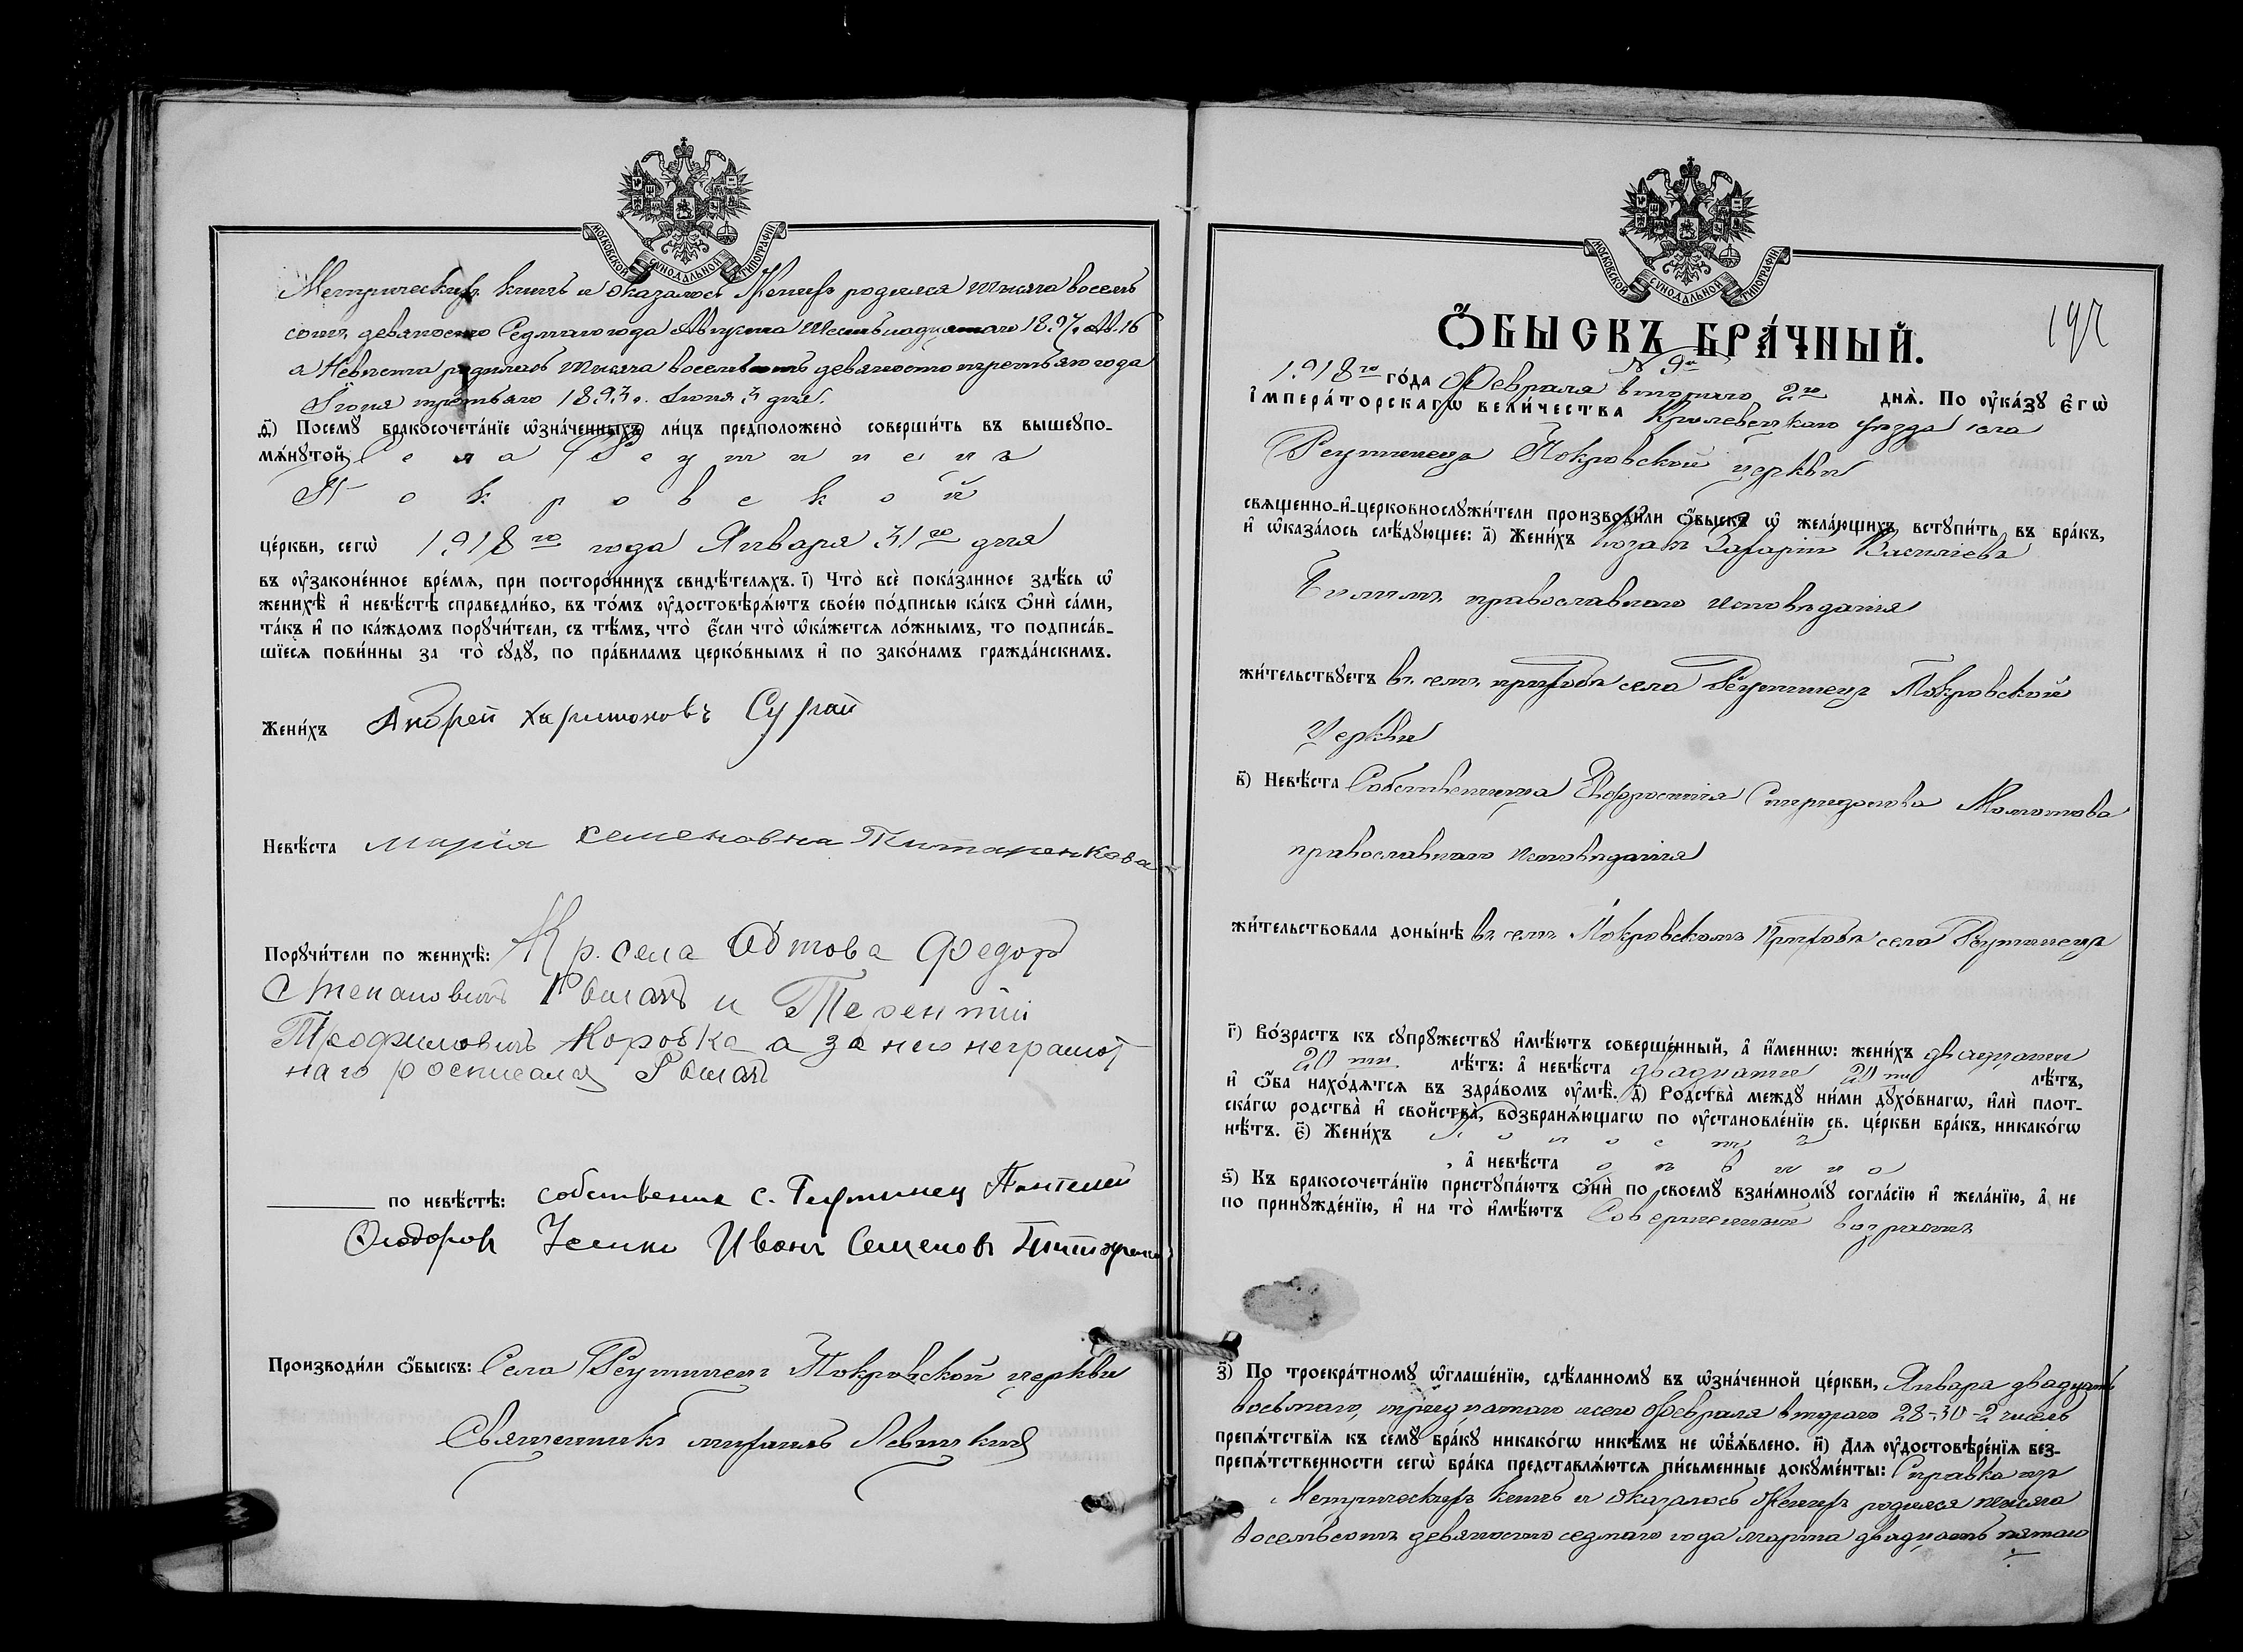 МОСКОВСКОЙ СѴНОДАЛЬНОЙ ТИПОГРАФІИ
Метрическихъ книгъ и оказалось Женихъ родился тысяча восемь
сотъ девяносто Седмаго года Августа Шестьнадцатаго 1897. Ав. 16
а Невѣста родилась тысяча восемьсотъ девяносто третьяго года
Іюня третьяго 1893 г. Іюня 3 дня.
ѳ҃) Посемꙋ̀ бракосочета́нїе ѡ҆зна́ченныхъ ли́цъ предположено̀ соверши́ть въ вышеꙋпо-
мѧ́нꙋтой Села Реутинецъ
Покровской
це́ркви, сегѡ̀ 1918го года Января 31го дня
въ ᲂу҆законе́нное вре́мѧ, при посторо́ннихъ свидѣ́телѧхъ. і҃) Что̀ всѐ пока́занное здѣ́сь ѡ҆
женихѣ̀ и҆ невѣ́стѣ справедли́во, въ то́мъ ᲂу҆достовѣрѧ́ютъ свое́ю по́дписью ка́къ ѻ҆нѝ са́ми,
та́къ и҆ по ка́ждомъ порꙋчи́тели, съ тѣ́мъ, что̀ є҆́сли что̀ ѡ҆ка́жетсѧ ло́жнымъ, то подписа́в-
шїесѧ пови́нны за то̀ сꙋдꙋ̀, по пра́виламъ церко́внымъ и҆ по зако́намъ гражда́нскимъ.
Жени́хъ Андрей Харитоновъ Сугай
Невѣ́ста Марія Семеновна Титаренкова
Порꙋчи́тели по женихѣ̀: Кр. села Обтова Федор
Степановичъ и Терентій
Трофимовичъ Коробка а за него неграмот
наго росписался
по невѣ́стѣ: собственик с. Реутинец Пантелей
Ѳеодоров Иван Семенов Титаренко
Производи́ли ѻ҆́быскъ: Села Реутинецъ Покровской церкви
Священникъ Михаилъ Левицкій
МОСКОВСКОЙ СѴНОДАЛЬНОЙ ТИПОГРАФІИ
Ѻ҆́БЫСКЪ БРА́ЧНЫЙ.
№ 9й
1918го го́да Февраля втораго 2го днѧ̀. По ᲂу҆ка́зꙋ є҆гѡ̀
і҆мпера́торскагѡ вели́чества Кролевецкаго уѣзда села
Реутинецъ Покровской церкви
свѧщенно-и҆-церковнослꙋжи́тели производи́ли ѻ҆́быскъ ѡ҆ жела́ющихъ встꙋпи́ть въ бра́къ,
и҆ ѡ҆каза́лось слѣ́дꙋющее: а҃) Жени́хъ козакъ Захарій Василіевъ
православнаго исповѣданія
жи́тельствꙋетъ въ семъ приходѣ села Реутинецъ Покровской
Церкви
в҃) Невѣ́ста Собственница Евфросинія Спиридонова Молотова
православнаго исповѣданія
жи́тельствовала доны́нѣ въ семъ Покровскомъ Приходѣ села Реутинецъ
г҃) Во́зрастъ къ сꙋпрꙋ́жествꙋ и҆мѣ́ютъ соверше́нный, а҆ и҆́меннѡ: жени́хъ двадцати
20ти лѣ́тъ: а҆ невѣ́ста двадцати 20ти лѣ́тъ,
и҆ ѻ҆́ба нахо́дѧтсѧ въ здра́вомъ ᲂу҆мѣ̀. д҃) Ро́дства̀ междꙋ̀ ни́ми дꙋхо́внагѡ, и҆лѝ плот-
ска́гѡ родства̀ и҆ свойства̀, возбранѧ́ющагѡ по ᲂу҆становле́нїю св. це́ркви бра́къ, никако́гѡ
нѣ́тъ. є҃) Жени́хъ холостъ
, а҆ невѣ́ста дѣвица
ѕ҃) Къ бракосочета́нїю пристꙋпа́ютъ ѻ҆нѝ по своемꙋ̀ взаи́мномꙋ согла́сїю и҆ жела́нїю, а҆ не
по принꙋжде́нїю, и҆ на то̀ и҆мѣ́ютъ Совершенный возрастъ
з҃) По троекра́тномꙋ ѡ҆глаше́нїю, сдѣ́ланномꙋ въ ѡ҆зна́ченной це́ркви, Января двадцать
восьмаго, тридцатаго и сего Февраля втораго 28-30-2 чиселъ
препѧ́тствїѧ къ семꙋ̀ бра́кꙋ никако́гѡ никѣ́мъ не ѡ҆б̾ѧ́влено. и҃) Длѧ ᲂу҆достовѣре́нїѧ без-
препѧ́тственности сегѡ̀ бра́ка представлѧ́ютсѧ пи́сьменные докꙋме́нты: Справка изъ
Метрическихъ книгъ и оказалось Женихъ родился тысяча
восемьсотъ девяносто седмаго года Марта двадцать пятаго